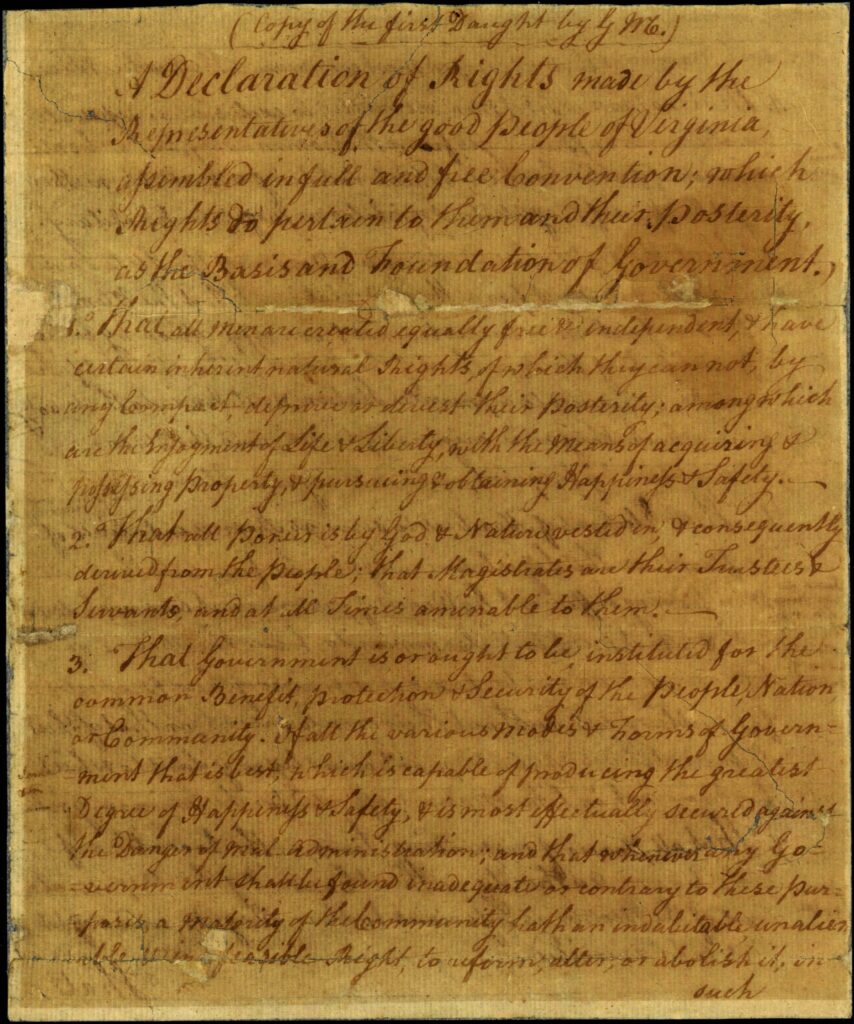 (Copy of the first Daught by G M.)
A Declaration of Rights made by the
Representatives of the good people of Virginia,
assembled in full and free Convention; which
Rights do pertain to them and their posterity,
as the Basis and Foundation of Government.)
1.º That all men are created equally free & independent, & have
certain inherent natural Rights, of which they can not, by
any Compact, deprive or divest their Posterity; among which
are the Enjoyment of Life & Liberty, with the Means of acquiring &
possessing property, & pursuing & obtaining Happiness & Safety.
2.º That all Power is by God & Nature vested in, & consequently
derived from the People; that Magistrates are their Trustees &
Servants, and at all Times amenable to them.
3. That Government is or ought to be, instituted for the
common Benefit, protection & Security of the People, Nation
or Community. Of all the various Modes & Forms of Govern=
=ment that is best, which is capable of producing the greatest
Degree of Happiness & Safety, & is most effectually secured against
the Danger of mal administration; and that whenever any Go=
=vernment shall be found inadequate or contrary to these pur=
=poses, a majority of the Community hath an indubitable unalien
able, & indefeasible Right, to reform, alter, or abolish it, in
such